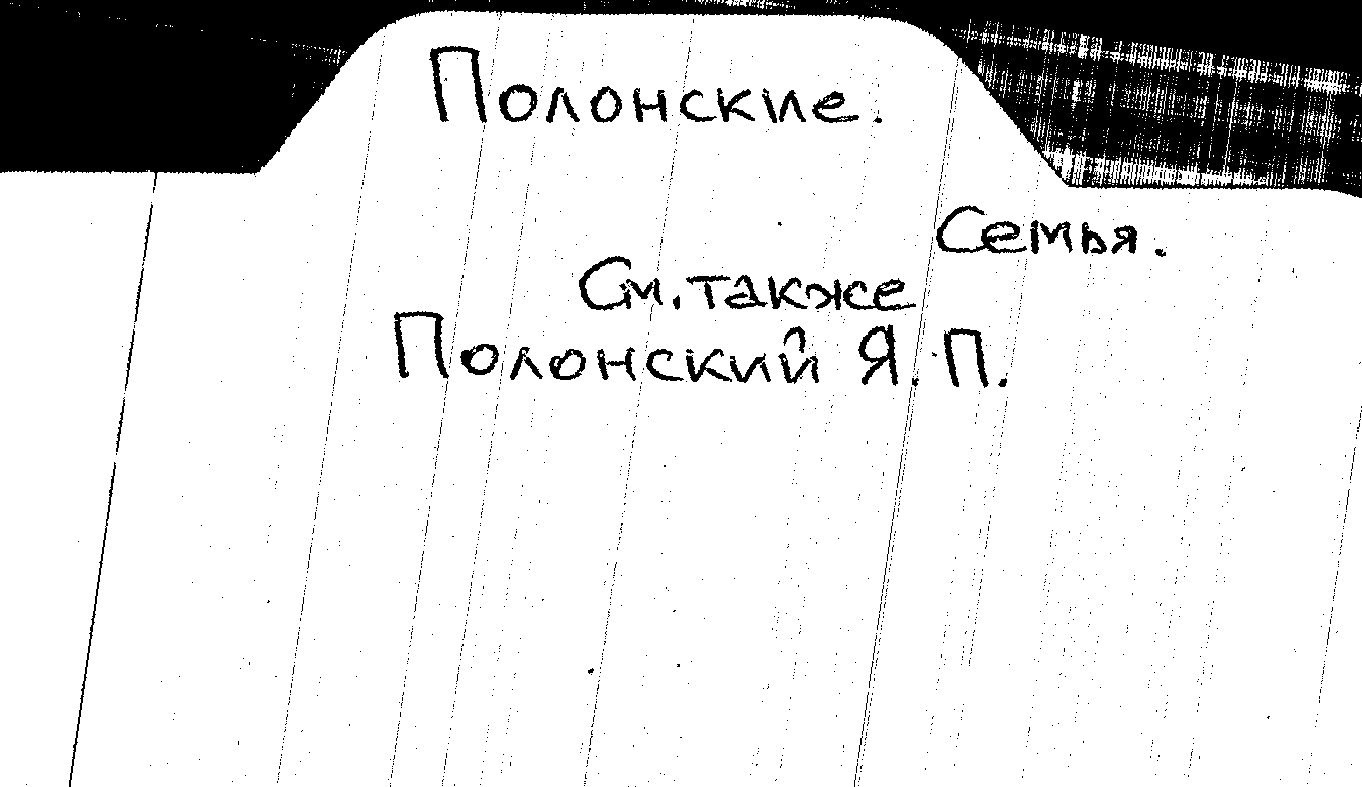 Полонские.
Семья.
См. также
Полонский Я.П.